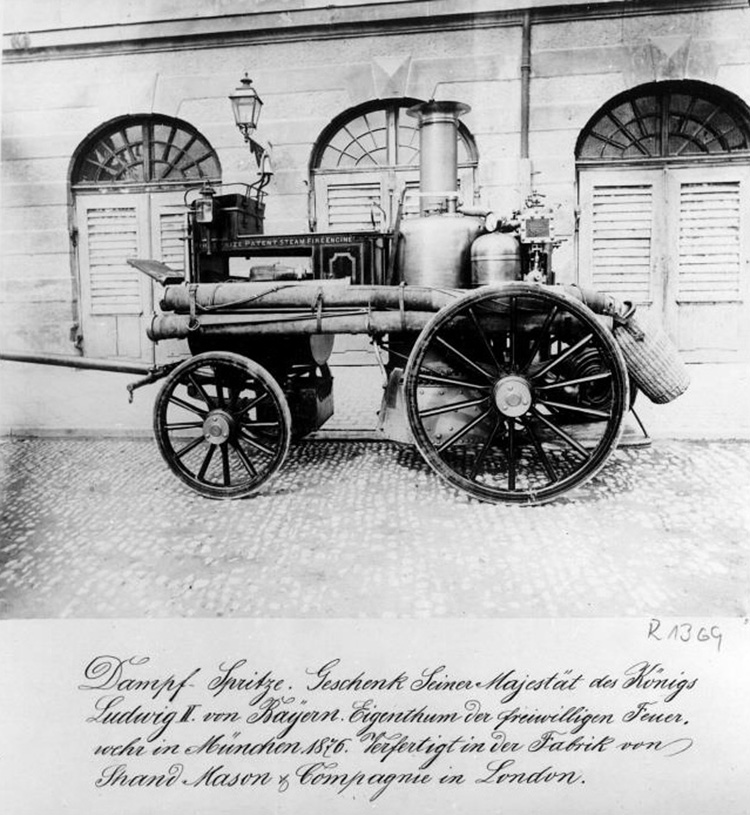 PRIZE PATENT STEAM FIRE ENGINE
R 1369
Dampf-Spritze. Geschenk Seiner Majestät des Königs
Ludwig II. von Bayern. Eigenthum der freiwilligen Feuer,
wehr in München 1876. Verfertigt in der Fabrik von
Shand Mason & Compagnie in London.